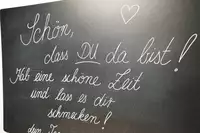 Schön,
dass DU da bist!
Hab eine schöne Zeit
und lass es dir
schmecken!